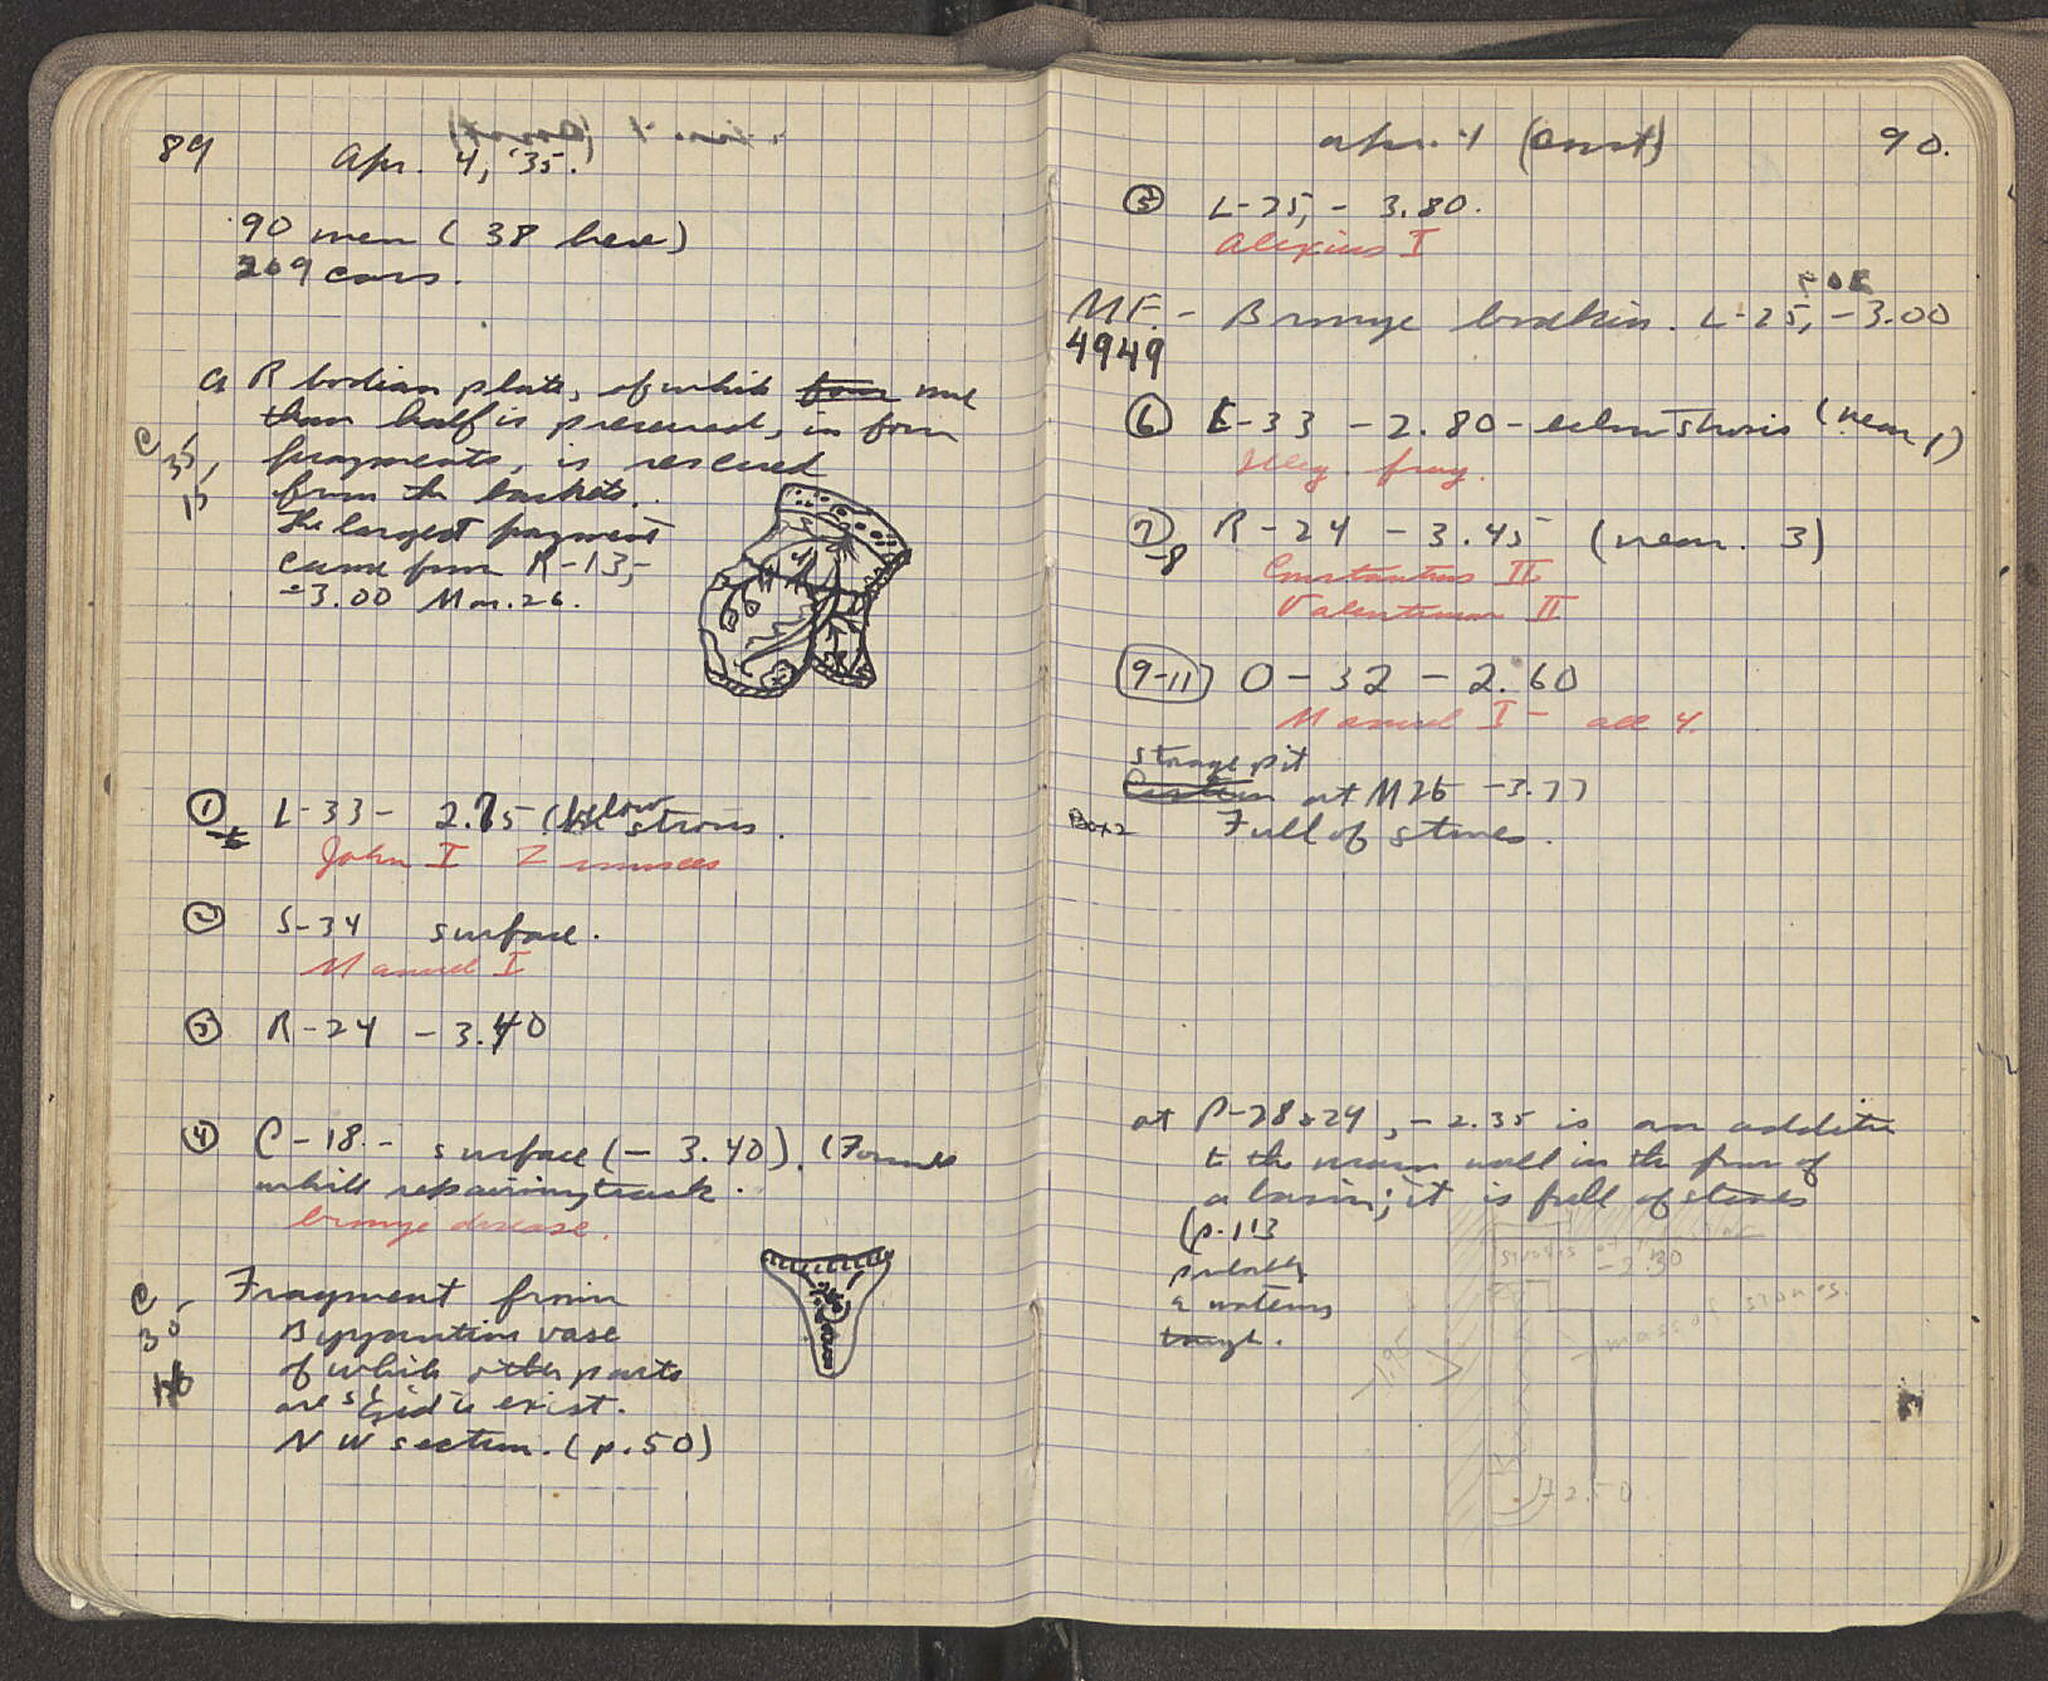 89
Apr. 4, '35.
90 men (38 here)
269 cars.
A Rhodian plate, of which four more
than half is preserved, in four
fragments, is rescued
from the baskets.
The largest fragment
came from R-13,-
-3.00 Mar. 26.
C
35,
15
① L-33- 2.75 (below stroses.
John I Zimisces
② S-34 surface.
Manuel I
③ R-24 - 3.40
④ C-18.- surface (- 3.40). (Found
while repairing track.
bronze disease.
C
35-
Fragment from
Byzantine vase
of which other parts
are said to exist.
NW section. (p. 50)
Apr. 4 (cont)
90.
⑤ L-25, - 3.80.
Alexius I
MF. - Bronze bodkin. L-25, -3.00
4949
⑥ E-33 - 2.80 - below stroses (near 1)
Illeg. frag.
⑦-8 R-24 - 3.45 (near. 3)
Constantius II
Valentinian II
9-11 O-32 - 2.60
Manuel I - all 4.
storage pit
Cistern at M26 -3.77
Box 2 Full of stones.
at P-28 & 29, - 2.35 is an addition
to the main wall in the form of
a basin; it is full of stones
(p. 113
probably
a watering
trough.
-2.30
mass of stones.
1.95
-2.50